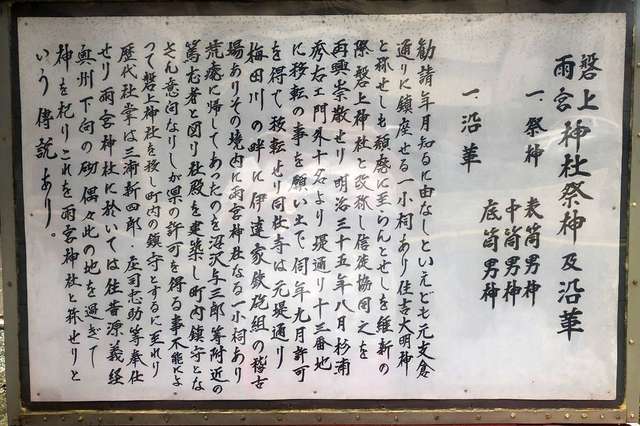 磐上
雨宮
神社祭神及沿革
一、祭神
表筒男神
中筒男神
底筒男神
一、沿革
勧請年月知るに由なしといえども元支倉
通りに鎮座せる一小祠あり住吉大明神
と称せしも頽廃に至らんとせしを維新の
際磐上神社と改称し信徒協同之を
再興崇敬せり明治三十五年八月杉浦
彦右エ門外十名より堤通り十三番地
に移転の事を願い出で同年九月許可
を得て移転せり同社寺は元堤通り
梅田川の畔に伊達家鉄砲組の稽古
場ありその境内に雨宮神社なる一小祠あり
荒廃に帰してあったのを沼沢与三郎等附近の
篤志者と図り社殿を建築し町内鎮守とな
さん意向なりしが県の許可を得る事不能によ
って磐上神社を移し町内の鎮守とするに至れり
歴代社掌は三浦新四郎、庄司忠助等奉仕
せり雨宮神社に於いては往昔源義経
奥州下向の砌偶々此の地を過ぎて
神を祀りこれを雨宮神社と称せりと
いう傳説あり。